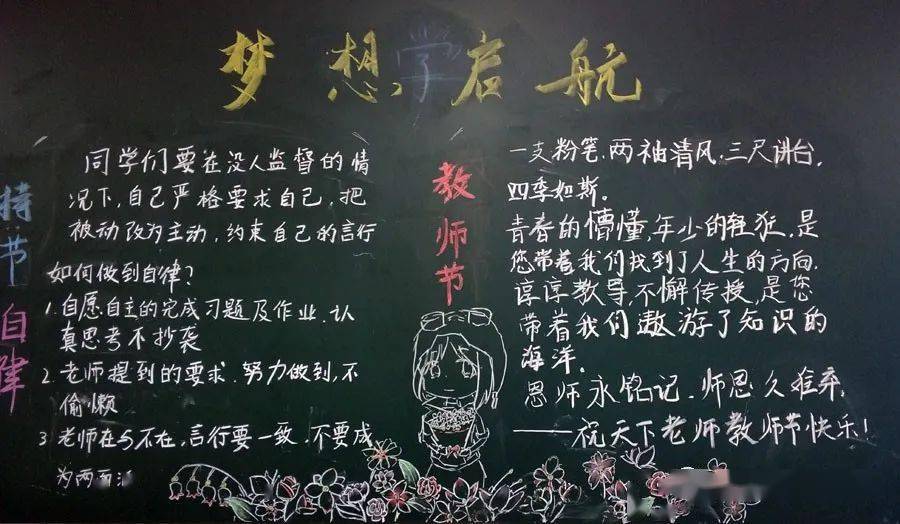 梦想学启航
持节自律
同学们要在没人监督的情
况下,自己严格要求自己,把
被动改为主动,约束自己的言行
如何做到自律?
1.自愿自主的完成习题及作业、认
真思考不抄袭
2.老师提到的要求、努力做到,不
偷懒
3 老师在与不在,言行要一致、不要成
为两面
教师节
一支粉笔、两袖清风、三尺讲台,
四季如斯。
青春的懵懂,年少的轻狂,是
您带着我们找到了人生的方向.
谆谆教导,不懈传授,是您
带着我们遨游了知识的
海洋。
恩师永铭记、师恩久难弃,
——祝天下老师教师节快乐!